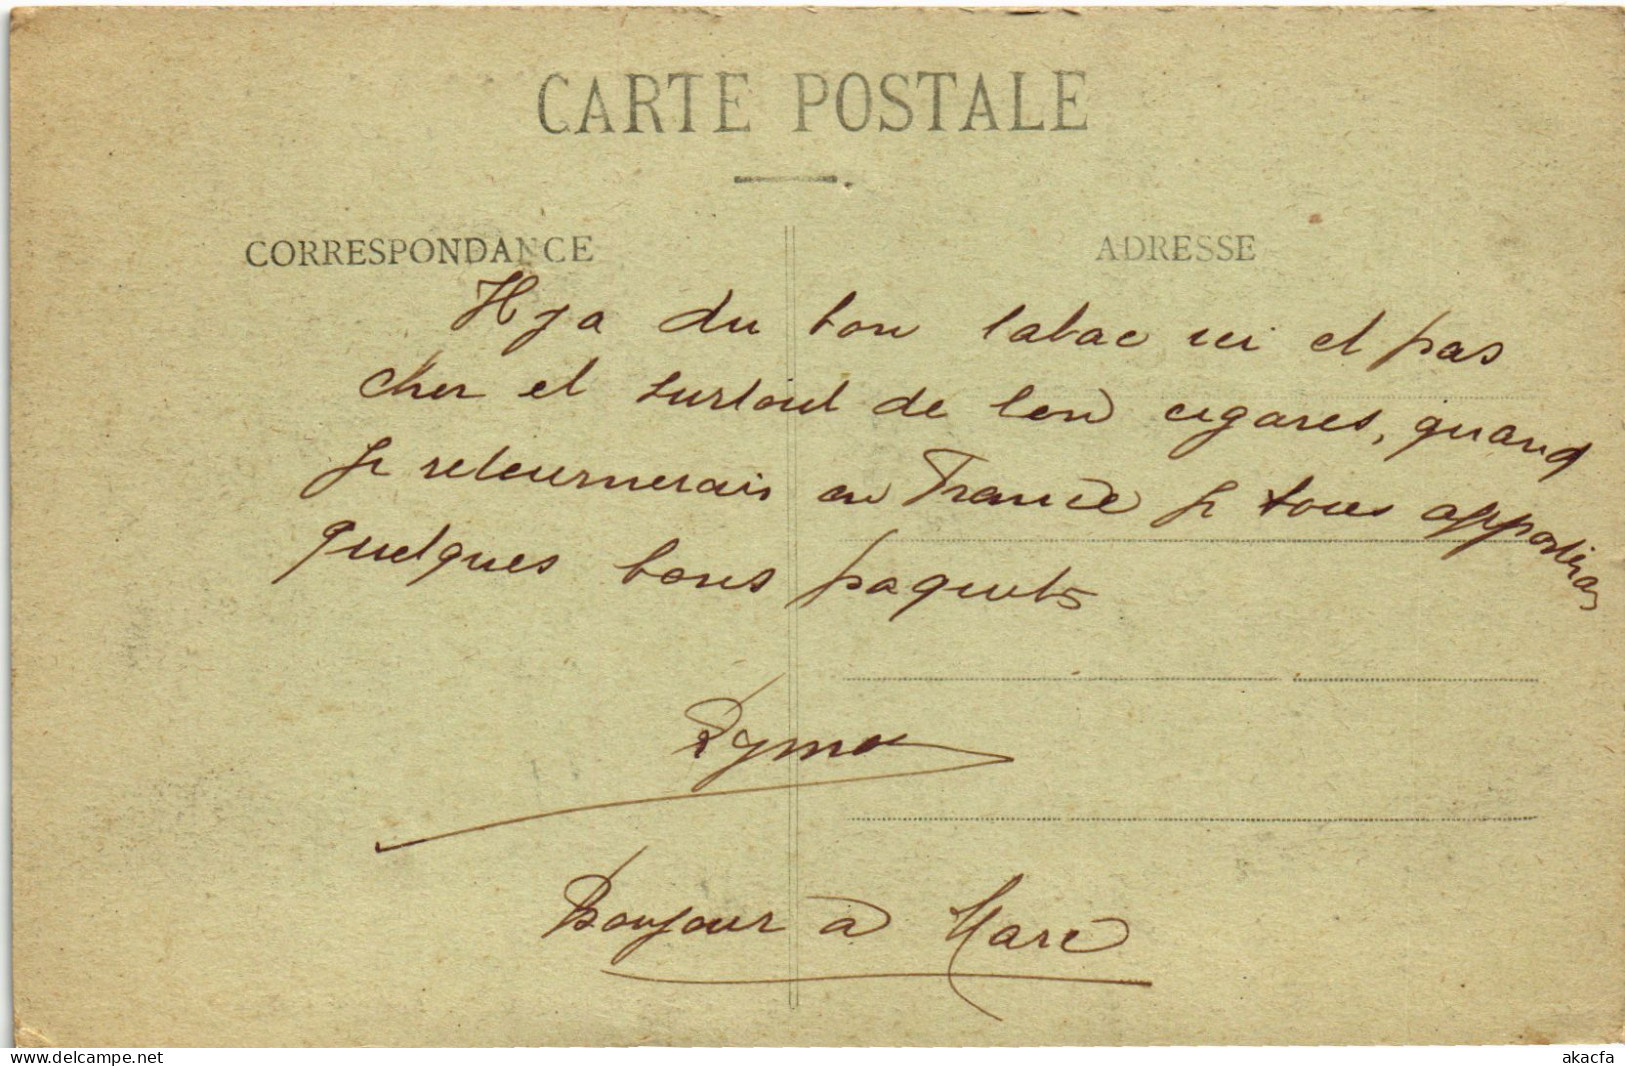 CARTE POSTALE
CORRESPONDANCE
ADRESSE
Il y a du bon tabac ici et pas
cher et surtout de bons cigares, quand
je retournerais en France je vous apporterais
quelques bons paquets
Bonjour à Marc
www.delcampe.net
akacfa